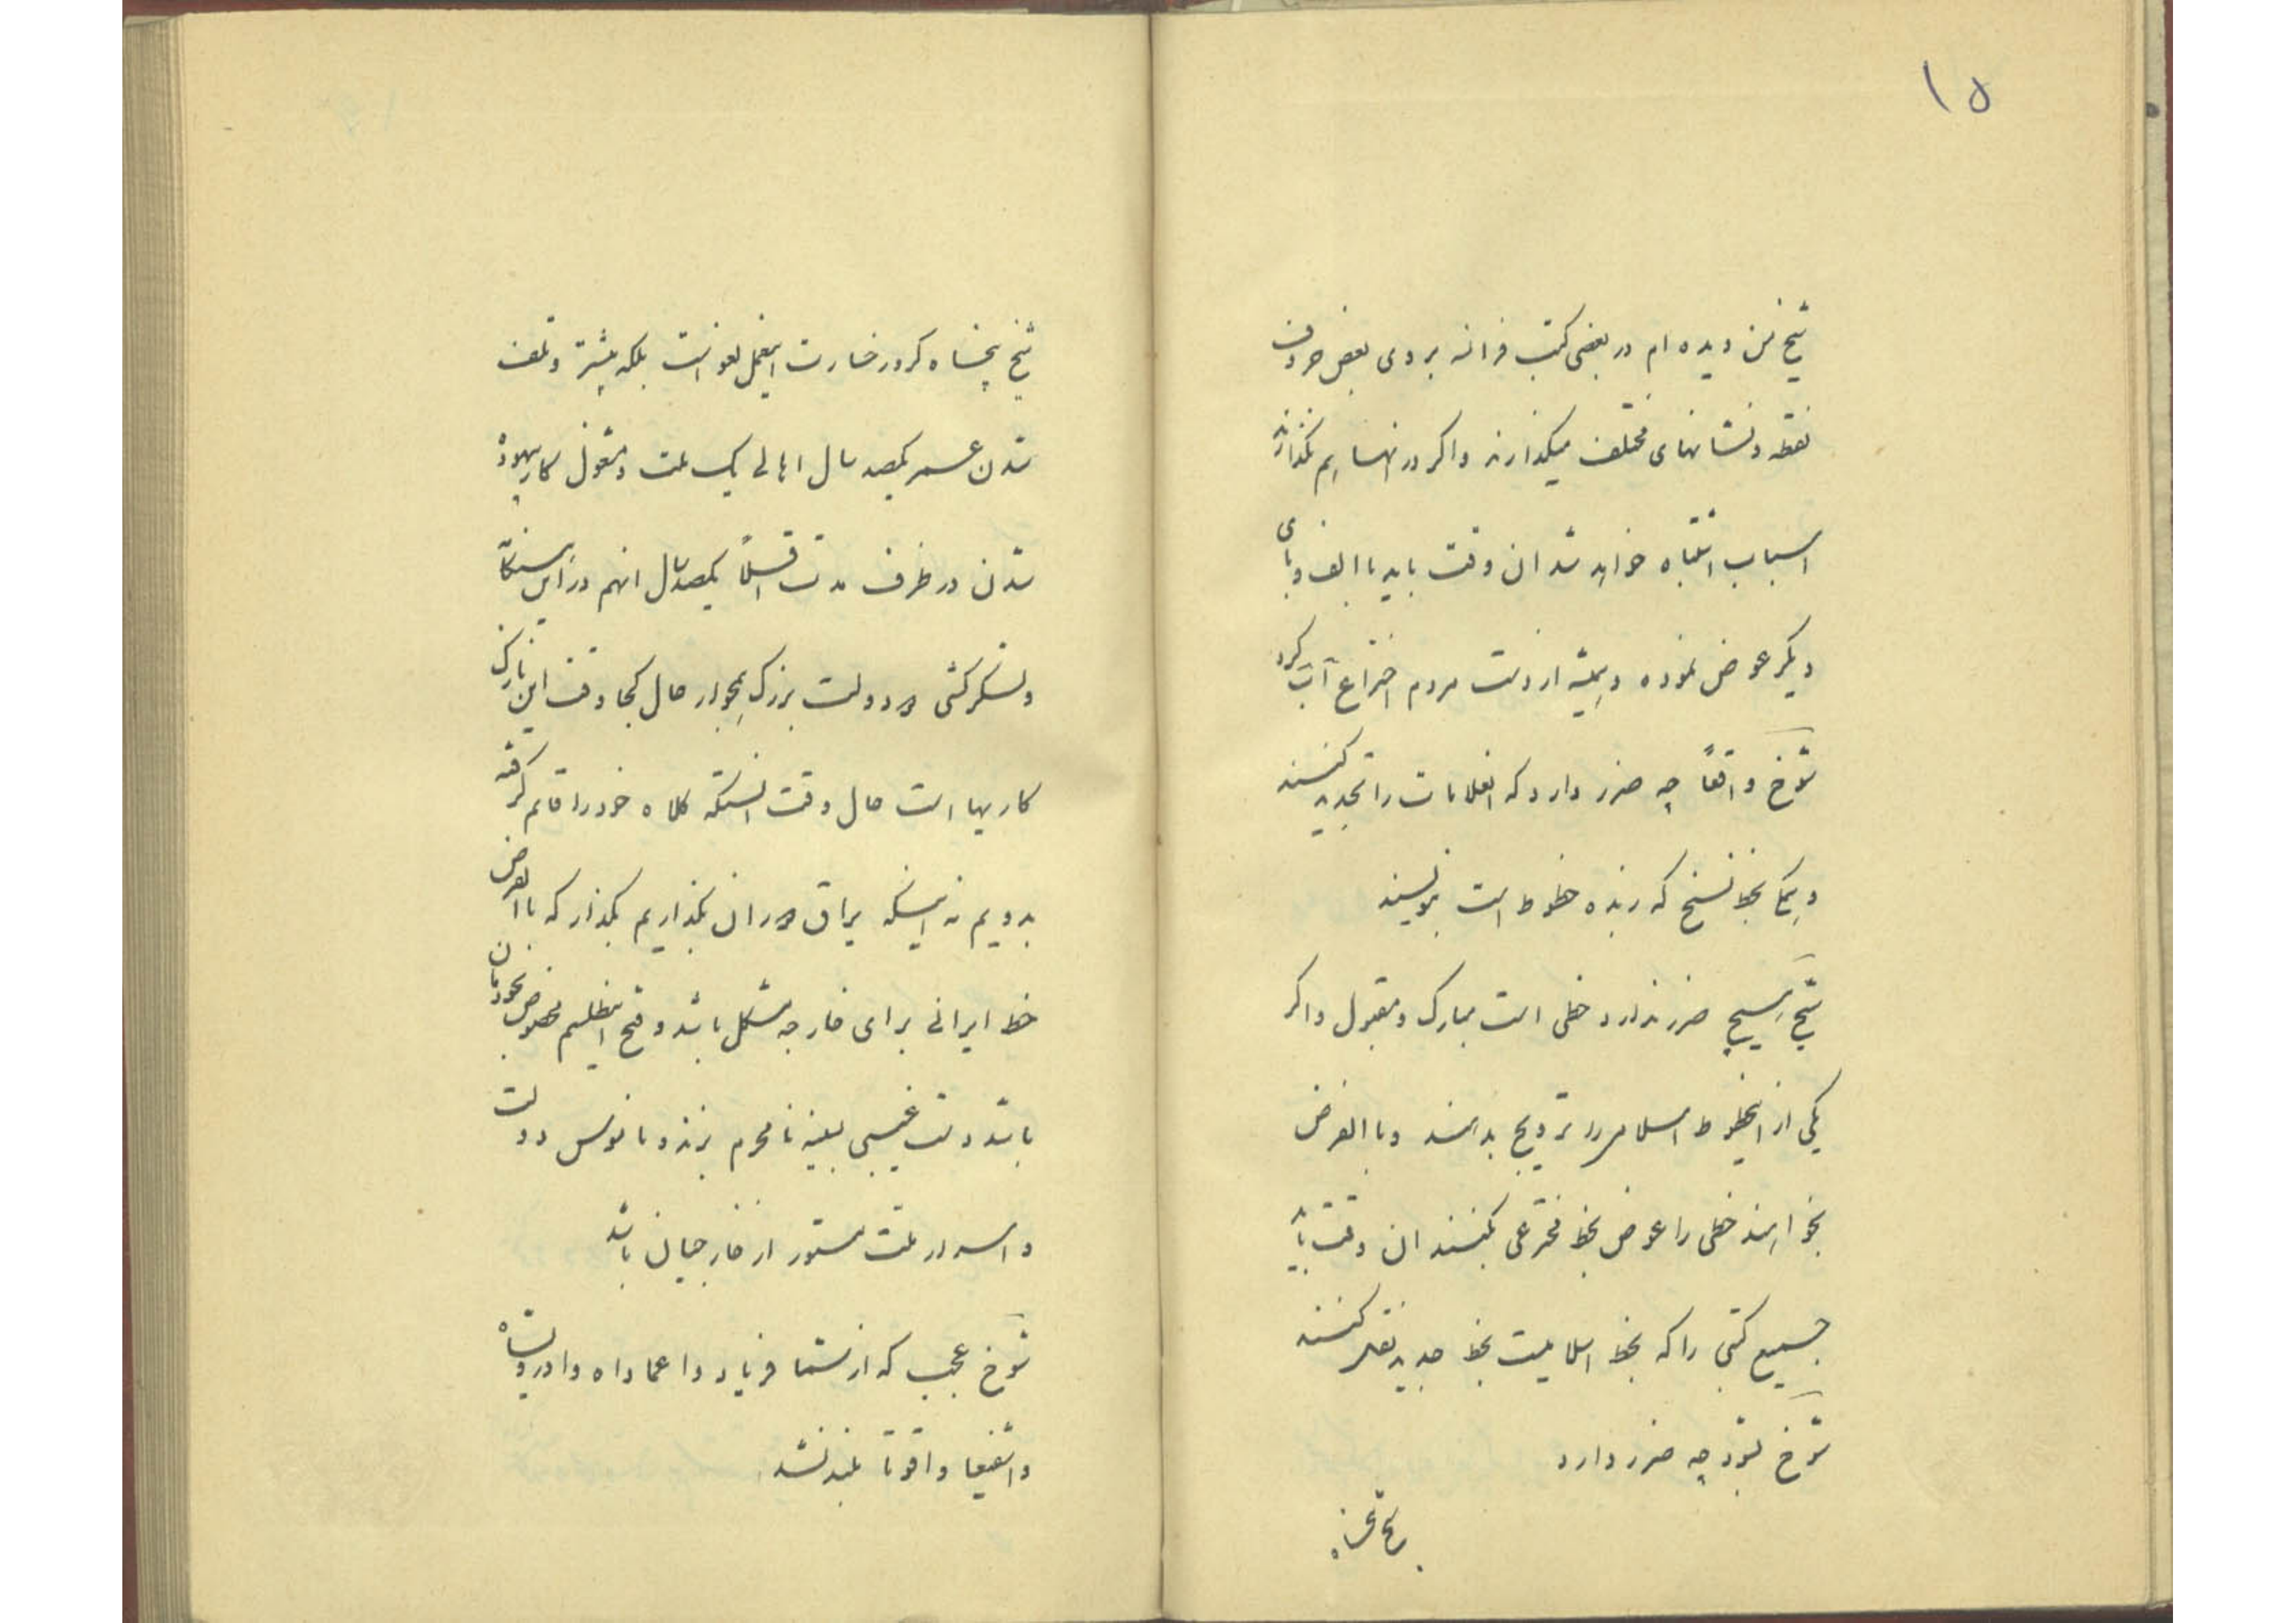 ۱۵
شیخ من دیده ام در بعضی کتب فرانسه بروی بعض حروف
نقطه و نشانهای مختلف میگذارند و اگر در انها هم نگذارند
اسباب اشتباه خواهد شد ان وقت باید با الف و بای
دیگر عوض نموده و همیشه از دست مردم اختراع آب کرد
شوخ واقعاً چه ضرر دارد که اغلامات را تجدید کنند
و یکجا بخط نسخ که زبده خطوط است بنویسند
شیخ هیچ ضرر ندارد خطی است مبارک و مقبول و اگر
یکی از اینخطوط اسلام را ترویج بدهند و با الفرض
بخواهند خطی را عوض بخط مخترعی بکنند ان وقت باید
جمیع کتبی را که بخط اسلامیست بخط جدید نقل کنند
شوخ بشود چه ضرر دارد
شیخ پنجاه کرور خسارت اینعمل لغو است بلکه بیشتر و تلف
شدن عمر یکصد سال اهالی یک ملت و مشغول کار بیهوده
شدن در ظرف مدت اقلاً یکصد سال انهم در این
و لشکر کشی دو دولت بزرگ بجوار حال کجا وقت این نازک
کاریها است حال وقت انستکه کلاه خود را قایم گرفته
بدویم نه اینکه یراق دوران بگذاریم بگذار که با الفرض
خط ایرانی برای خارجه مشکل باشد و فتح اینطلسم مخصوص بخودمان
باشد دست غیبی بسینه نامحرم بزند و ناموس دولت
و اسرار ملت مستور از خارجیان باشد
شوخ عجب که از شما فریاد وا عماداه وا درویشاه
وا شفیعا وا قوتا بلند نشد